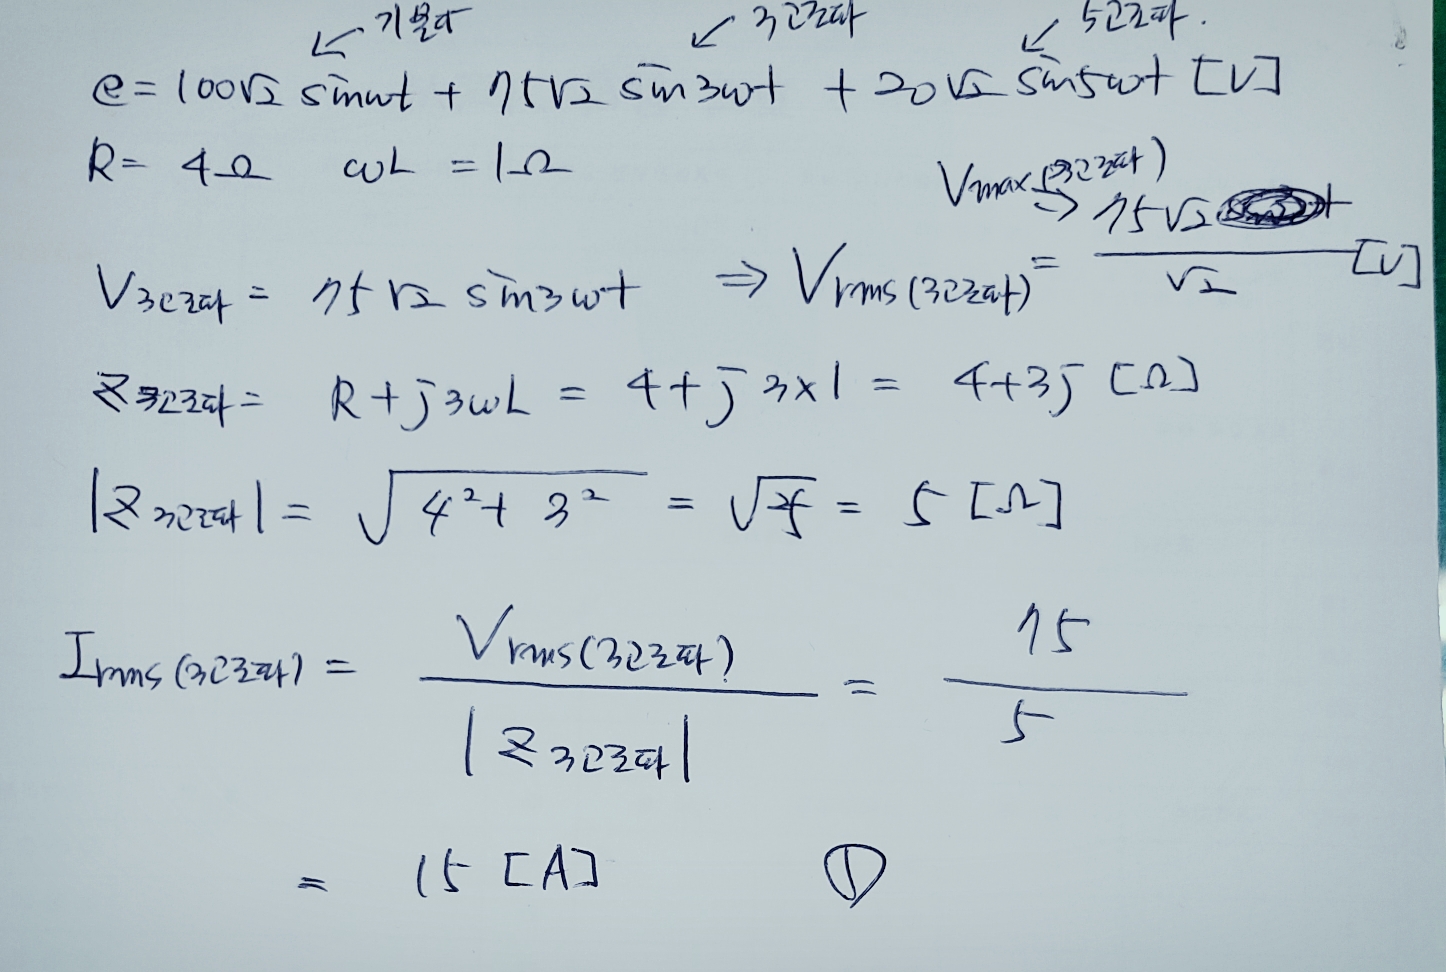 기본파 3고조파 5고조파.
e = 100√2 sinωt + 75√2 sin3ωt + 20√2 sin5ωt [V]
R = 4Ω ωL = 1Ω
Vmax(3고조파)
V3고조파 = 75√2 sin3ωt ⇒ Vrms(3고조파) = 75√2 / √2 [V]
Z3고조파 = R + j3ωL = 4 + j3×1 = 4+3j [Ω]
|Z3고조파| = √(4² + 3²) = √25 = 5 [Ω]
Irms(3고조파) = Vrms(3고조파) / |Z3고조파| = 75 / 5
= 15 [A] ①